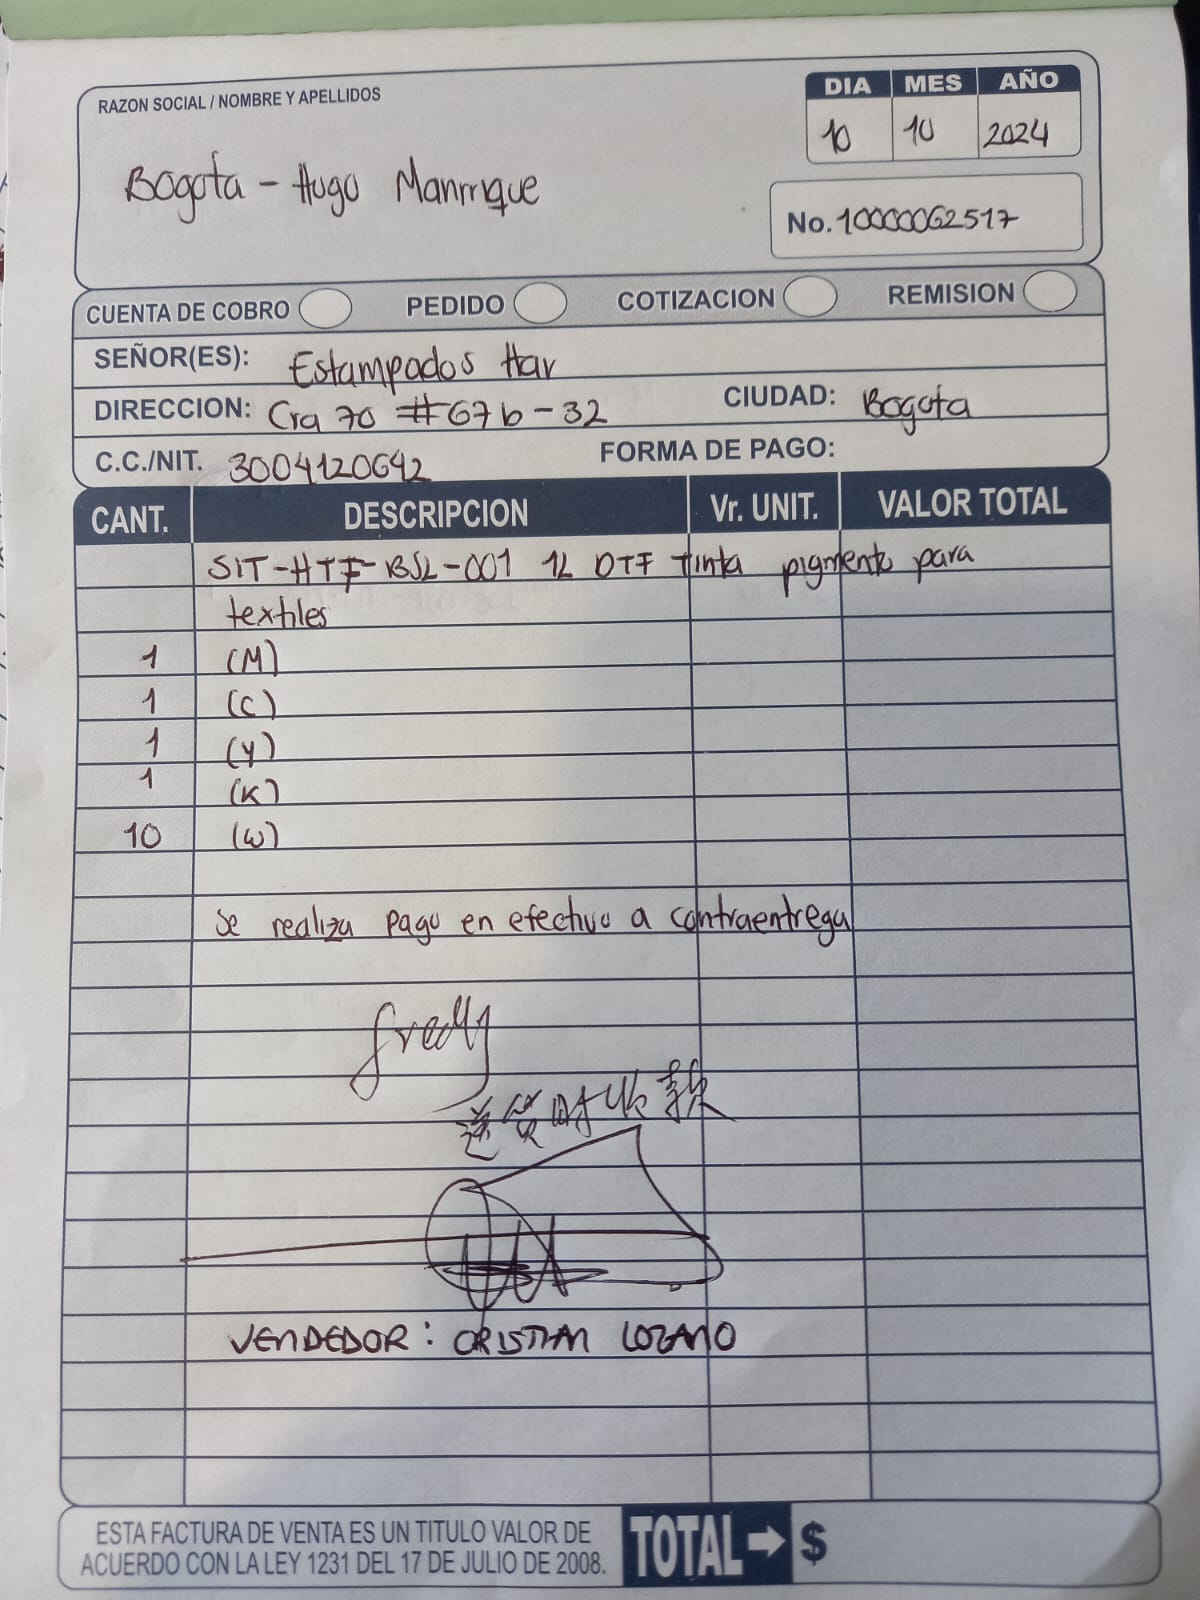 RAZON SOCIAL / NOMBRE Y APELLIDOS
DIA MES AÑO
10 10 2024
Bogota - Hugo Manrrique
No. 10000062517
CUENTA DE COBRO PEDIDO COTIZACION REMISION
SEÑOR(ES): Estampados Har
DIRECCION: Cra 70 #67b-32 CIUDAD: Bogota
C.C./NIT. 3004120642 FORMA DE PAGO:
CANT. DESCRIPCION Vr. UNIT. VALOR TOTAL
SIT-HTF-BSL-001 1L DTF Tinta pigmento para
textiles
1 (M)
1 (C)
1 (Y)
1 (K)
10 (W)
Se realiza pago en efectivo a contraentrega
fredy
送货时收款
VENDEDOR: CRISTIAN LOZANO
ESTA FACTURA DE VENTA ES UN TITULO VALOR DE
ACUERDO CON LA LEY 1231 DEL 17 DE JULIO DE 2008.
TOTAL → $